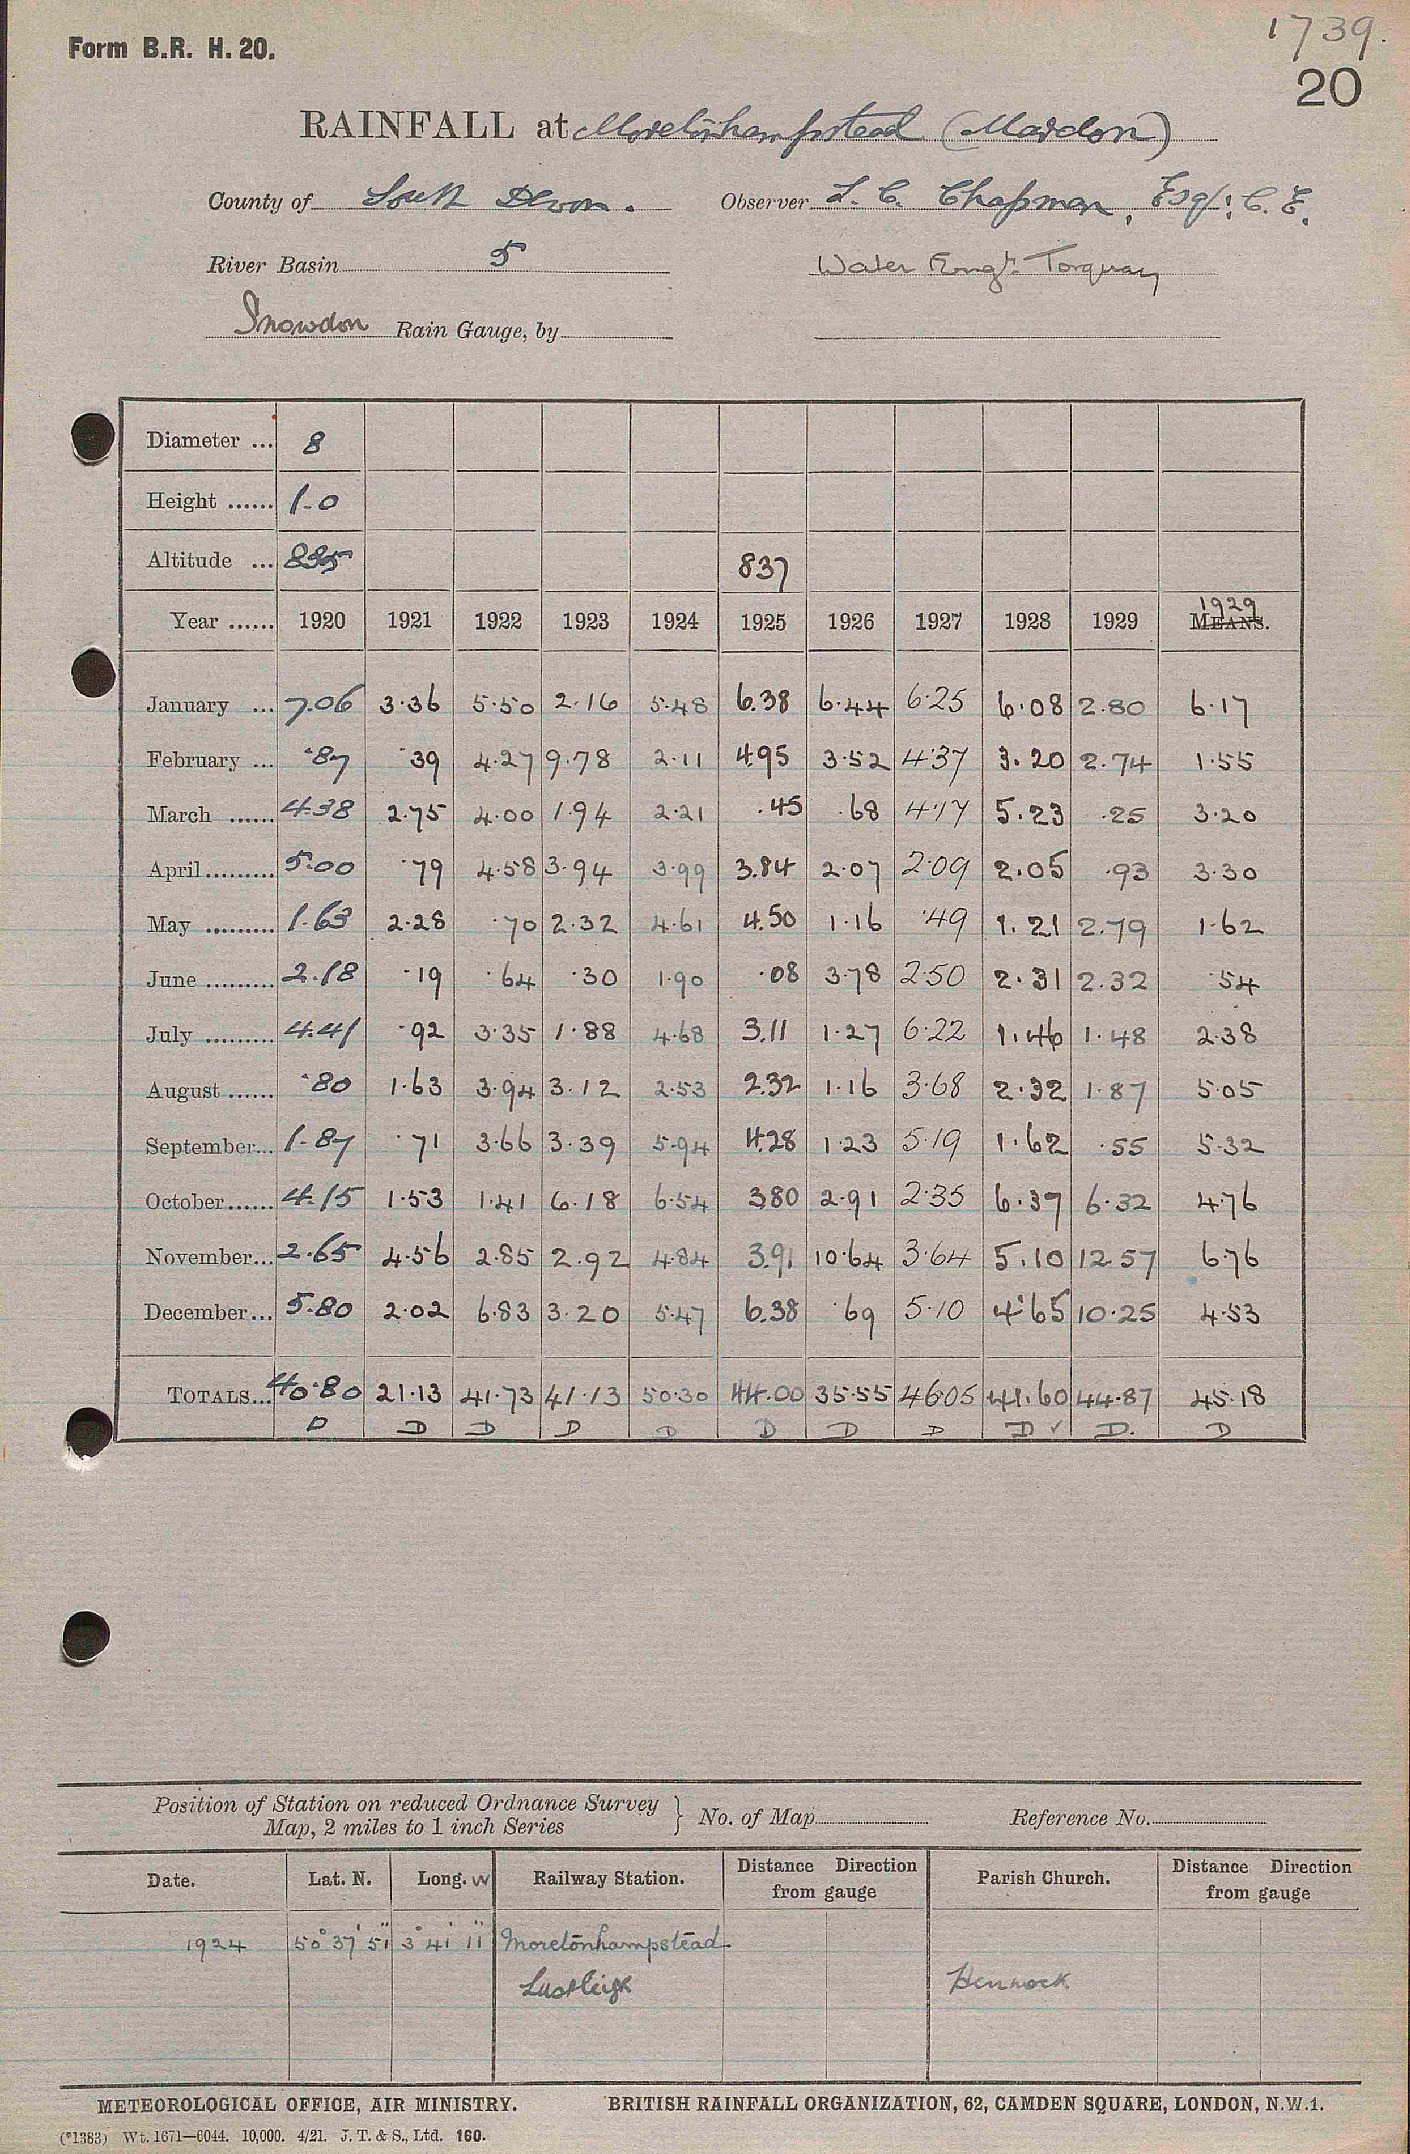 1739.
Form B.R. H. 20.
20
RAINFALL at Moretonhampstead (Mardon)
County of South Devon. Observer S. C. Chapman, Esq: C. E.
River Basin 5 Water Engr. Torquay
Snowdon Rain Gauge, by
Diameter ... 8
Height ...... 1-0
Altitude ... 835 837
Year ...... 1920 1921 1922 1923 1924 1925 1926 1927 1928 1929 1929 MEANS.
January ... 7.06 3.36 5.50 2.16 5.48 6.38 6.44 6.25 6.08 2.80 6.17
February ... .87 .39 4.27 9.78 2.11 4.95 3.52 4.37 3.20 2.74 1.55
March ...... 4.38 2.75 4.00 1.94 2.21 .45 .68 4.17 5.23 .25 3.20
April ......... 5.00 .79 4.58 3.94 3.99 3.84 2.07 2.09 2.05 .93 3.30
May ......... 1.63 2.28 .70 2.32 4.61 4.50 1.16 .49 1.21 2.79 1.62
June ......... 2.18 .19 .64 .30 1.90 .08 3.78 2.50 2.31 2.32 .54
July ......... 4.41 .92 3.35 1.88 4.68 3.11 1.27 6.22 1.46 1.48 2.38
August ...... .80 1.63 3.94 3.12 2.53 2.32 1.16 3.68 2.32 1.87 5.05
September... 1.87 .71 3.66 3.39 5.94 4.28 1.23 5.19 1.62 .55 5.32
October...... 4.15 1.53 1.41 6.18 6.54 3.80 2.91 2.35 6.37 6.32 4.76
November... 2.65 4.56 2.85 2.92 4.84 3.91 10.64 3.64 5.10 12.57 6.76
December... 5.80 2.02 6.83 3.20 5.47 6.38 .69 5.10 4.65 10.25 4.53
TOTALS... 40.80 21.13 41.73 41.13 50.30 44.00 35.55 46.05 41.60 44.87 45.18
D D D D D D D D D ✓ D. D
Position of Station on reduced Ordnance Survey
Map, 2 miles to 1 inch Series } No. of Map Reference No.
Date. Lat. N. Long. W Railway Station. Distance Direction from gauge Parish Church. Distance Direction from gauge
1924 50° 37' 51" 3° 41' 11" Moretonhampstead
Lustleigh Hennock
METEOROLOGICAL OFFICE, AIR MINISTRY. BRITISH RAINFALL ORGANIZATION, 62, CAMDEN SQUARE, LONDON, N.W.1.
(*1383) Wt. 1671—6044. 10,000. 4/21. J. T. & S., Ltd. 160.